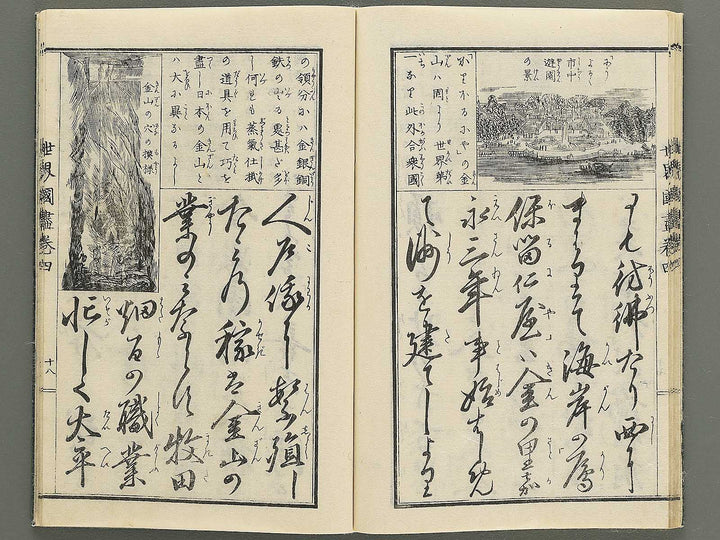 市中
遊園
の景
かりほるにやの金
山ハ固より世界第
一なり此外合衆國
も彷彿たり西に
まハりて海岸の
保留仁屋ハ金の里嘉
永三年事始
て州を建てしより
世界國盡巻四
の領分にハ金銀銅
鉄の出る處甚だ多
し何れも蒸氣仕掛
の道具を用て巧を
盡し日本の金山と
ハ大に異なるよし
金山の穴の模様
人口俄に繁殖し
たみの稼は金山の
業のみならず牧田
畑百の職業
忙しく太平
世界國盡巻四
十八